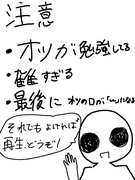 注意
・オツが勉強してる
・雑すぎる
・最後にオツのDが「ლ」になる
それでもよければ
再生、どうぞ!